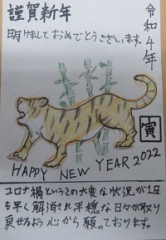 謹賀新年
明けましておめでとうございます。
令和4年
寅
HAPPY NEW YEAR 2022
コロナ禍というこの大変な状況が1日
も早く解消され平穏な日々が取り
戻せるよう心から願っております。